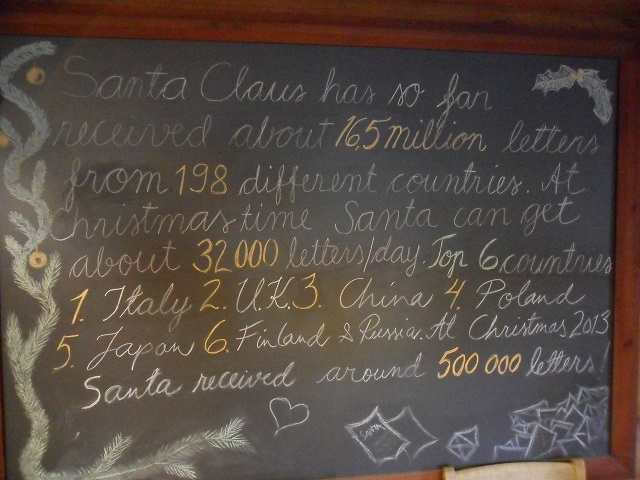 Santa Claus has so far
received about 16,5 million letters
from 198 different countries. At
Christmas time Santa can get
about 32 000 letters/day. Top 6 countries
1. Italy 2. U.K. 3. China 4. Poland
5. Japan 6. Finland & Russia. At Christmas 2013
Santa received around 500 000 letters!
SANTA